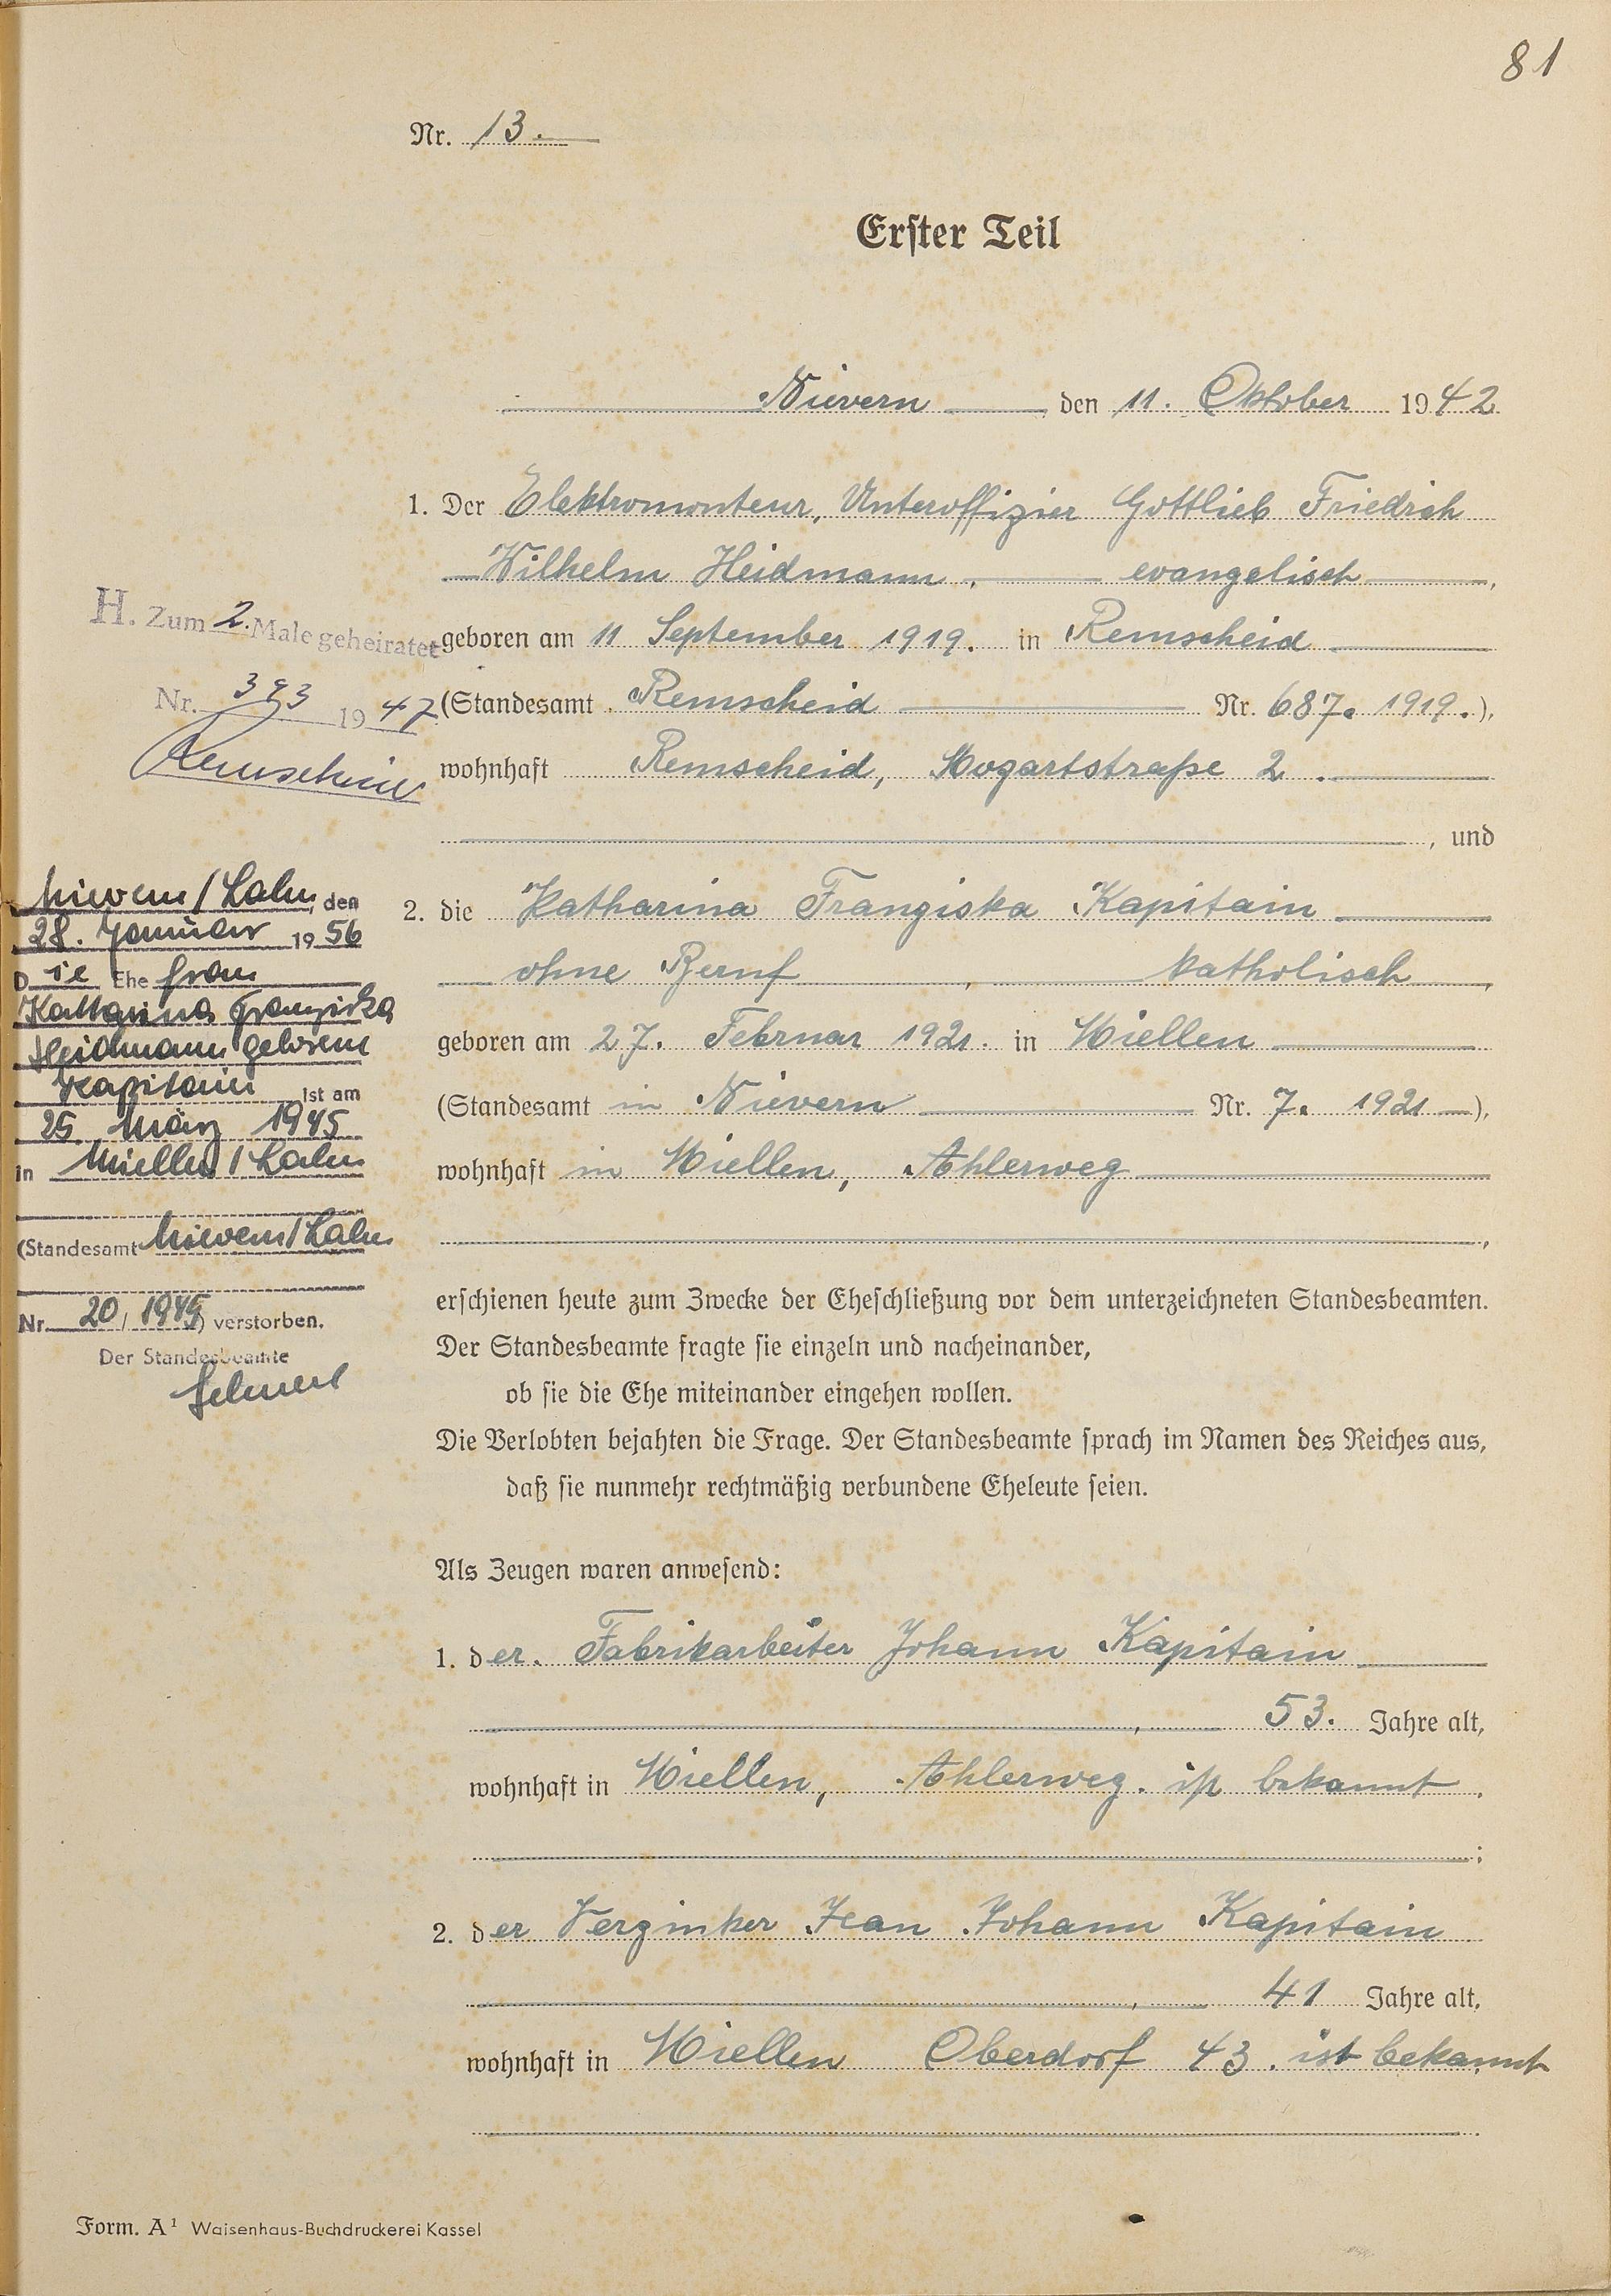 81
Nr. 13.
Erster Teil
Nievern den 11. Oktober 1942
1. Der Elektromonteur, Unteroffizier Gottlieb Friedrich
Wilhelm Heidmann, evangelisch,
geboren am 11 September 1919. in Remscheid
(Standesamt Remscheid Nr. 687. 1919.),
wohnhaft Remscheid, Mozartstraße 2.
, und
2. die Katharina Franziska Kapitain
ohne Beruf, katholisch,
geboren am 27. Februar 1921. in Miellen
(Standesamt in Nievern Nr. 7. 1921),
wohnhaft in Miellen, Ahlerweg
,
erschienen heute zum Zwecke der Eheschließung vor dem unterzeichneten Standesbeamten.
Der Standesbeamte fragte sie einzeln und nacheinander,
ob sie die Ehe miteinander eingehen wollen.
Die Verlobten bejahten die Frage. Der Standesbeamte sprach im Namen des Reiches aus,
daß sie nunmehr rechtmäßig verbundene Eheleute seien.
Als Zeugen waren anwesend:
1. der. Fabrikarbeiter Johann Kapitain
, 53. Jahre alt,
wohnhaft in Miellen, Ahlerweg. ist bekannt.
;
2. der Verzinker Jean Johann Kapitain
, 41 Jahre alt,
wohnhaft in Miellen Oberdorf 43. ist bekannt
H. Zum 2. Male geheiratet
Nr. 393 1947
Remscheid
Nievern/Lahn, den
28. Januar 1956
Die Ehefrau
Katharina Franziska
Heidmann geborene
Kapitain ist am
25. März 1945
in Miellen/Lahn
(Standesamt Nievern/Lahn
Nr. 20/1945) verstorben.
Der Standesbeamte
Form. A¹ Waisenhaus-Buchdruckerei Kassel